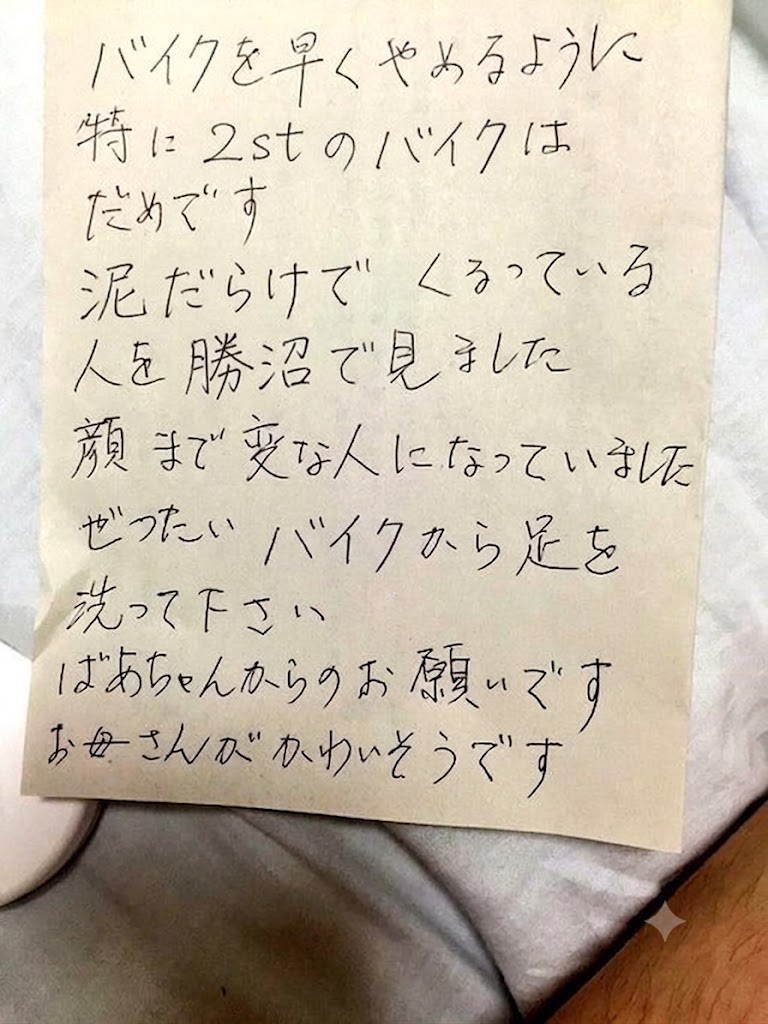 バイクを早くやめるように
特に2stのバイクは
だめです
泥だらけで くるっている
人を勝沼で見ました
顔まで変な人になっていました
ぜったい バイクから足を
洗って下さい
ばあちゃんからのお願いです
お母さんがかわいそうです